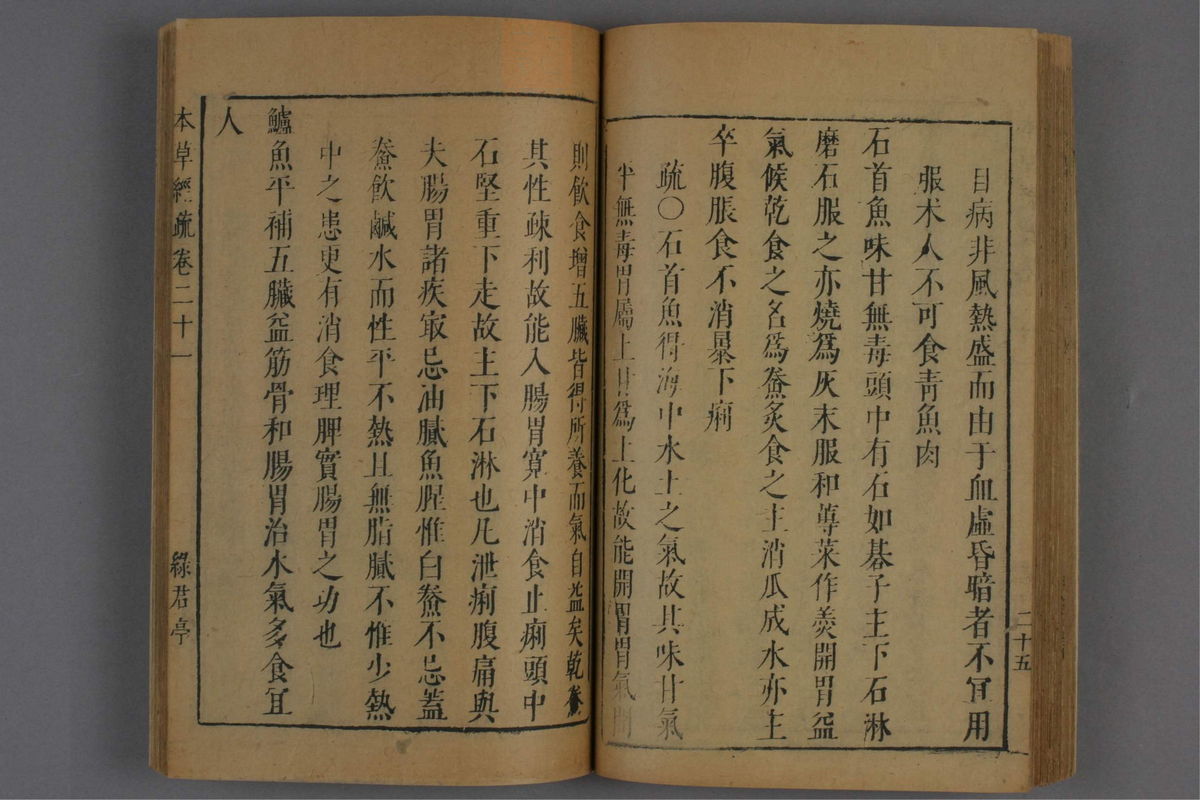 目病非風熱盛而由于血虛昏暗者不宜用
服术人不可食青魚肉
石首魚味甘無毒頭中有石如碁子主下石淋
磨石服之亦燒爲灰末服和蓴菜作羹開胃益
氣候乾食之名爲鮝炙食之主消瓜成水亦主
卒腹脹食不消暴下痢
疏○石首魚得海中水土之氣故其味甘氣
平無毒胃屬土甘爲土化故能開胃胃氣開
二十五
則飲食增五臟皆得所養而氣自益矣乾鮝
其性疎利故能入腸胃寬中消食止痢頭中
石堅重下走故主下石淋也凡泄痢腹痛與
夫腸胃諸疾㝡忌油膩魚腥惟白鮝不忌蓋
鮝飲鹹水而性平不熱且無脂膩不惟少熱
中之患更有消食理脾實腸胃之功也
鱸魚平補五臟益筋骨和腸胃治水氣多食宜
人
本草經疏卷二十一
綠君亭